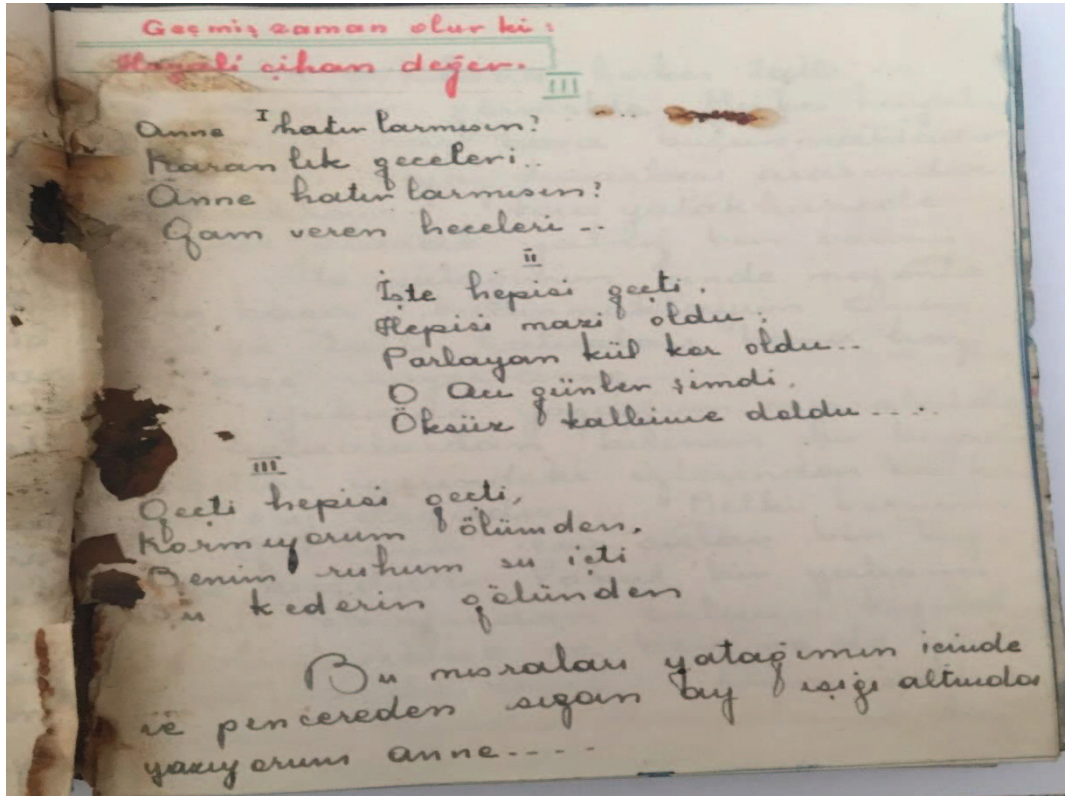 Geçmiş zaman olur ki:
Hayali çihan değer.
III
I
Anne hatırlarmısın?
Karanlık geceleri..
Anne hatırlarmısın?
Gam veren heceleri ..
II
İşte hepisi geçti.
Hepisi mazi oldu.
Parlayan kül kor oldu..
O acı günler şimdi.
Öksüz kalbime doldu ....
III
Geçti hepisi geçti,
Kormıyorum ölümden,
Benim ruhum su içti
kederin gölünden
Bu mısraları yatağımın içinde
ve pencereden sızan ay ışığı altında
yazıyorum anne....